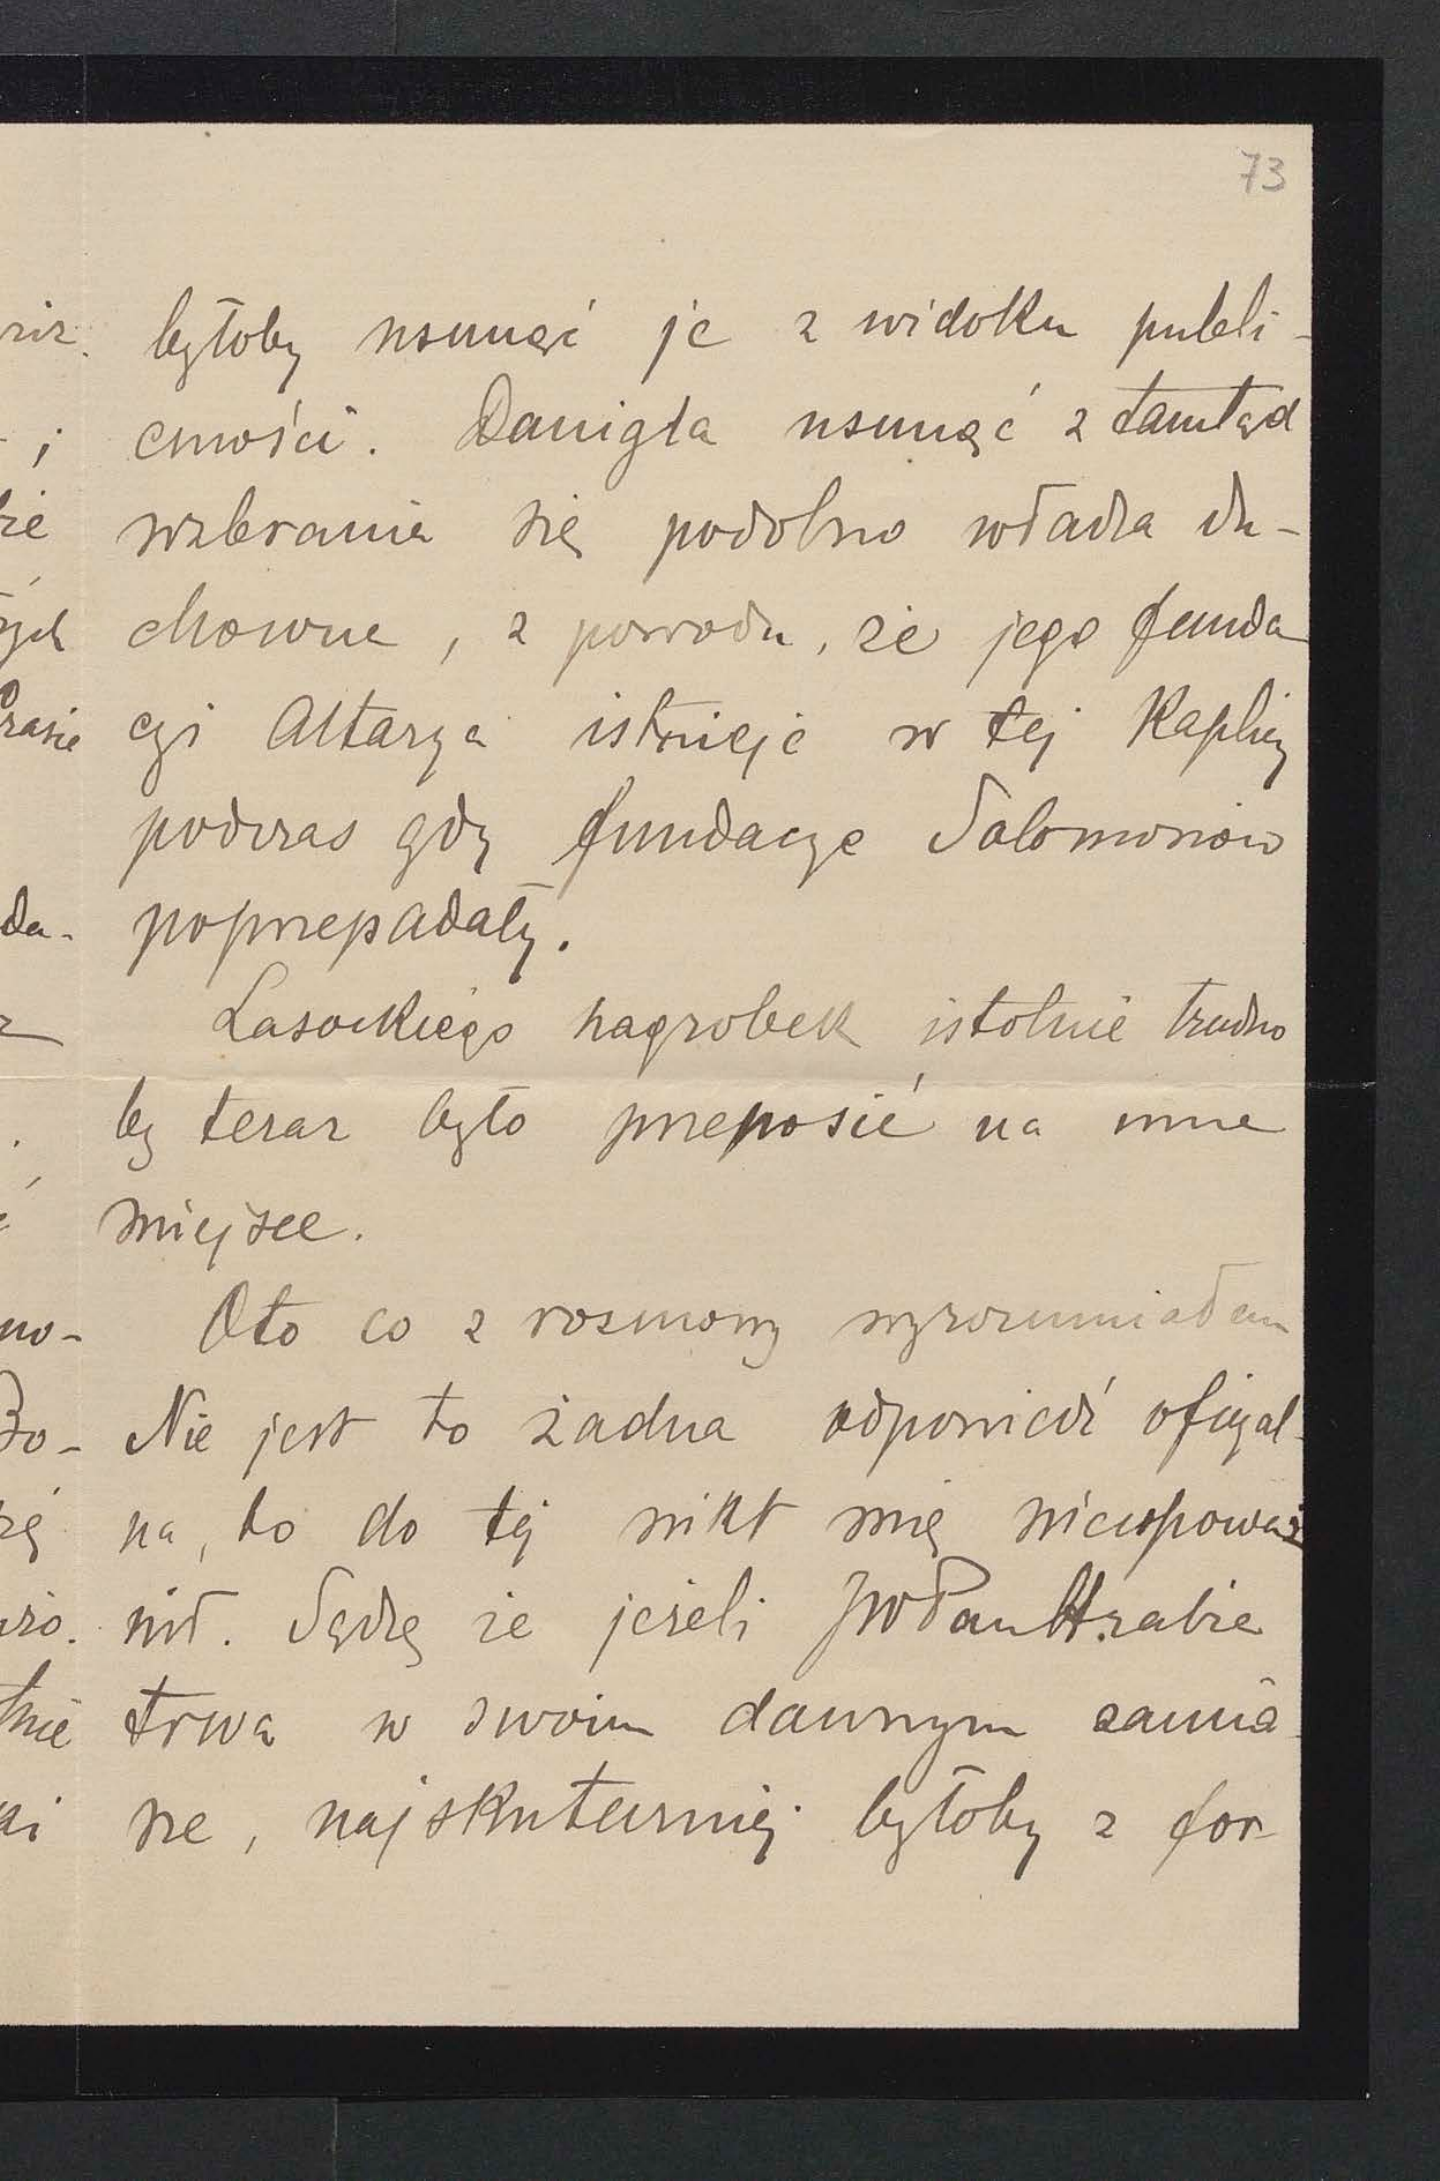 73
byłoby usunąć je z widoku publi-
czności. Danigla usunąć z tamtąd
wzbrania się podobno władza du-
chowna, z powodu, że jego funda
cyi Altarya istnieje w tej Kaplicy
podczas gdy fundacye Salomonów
poprzepadały.
Lasockiego nagrobek istotnie trudno
by teraz było przenosić na inne
miejsce.
Oto co z rozmowy wyrozumiałem
Nie jest to żadna odpowiedź oficyal-
na, bo do tej nikt mię nieupoważ
nił. Sądzę że jeżeli JWPan Hrabia
trwa w swoim dawnym zamia
rze, najskuteczniej byłoby z for-